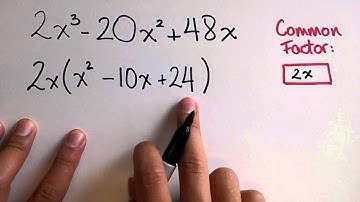 2x³-20x²+48x
2x(x²-10x+24)
Common
Factor:
2x